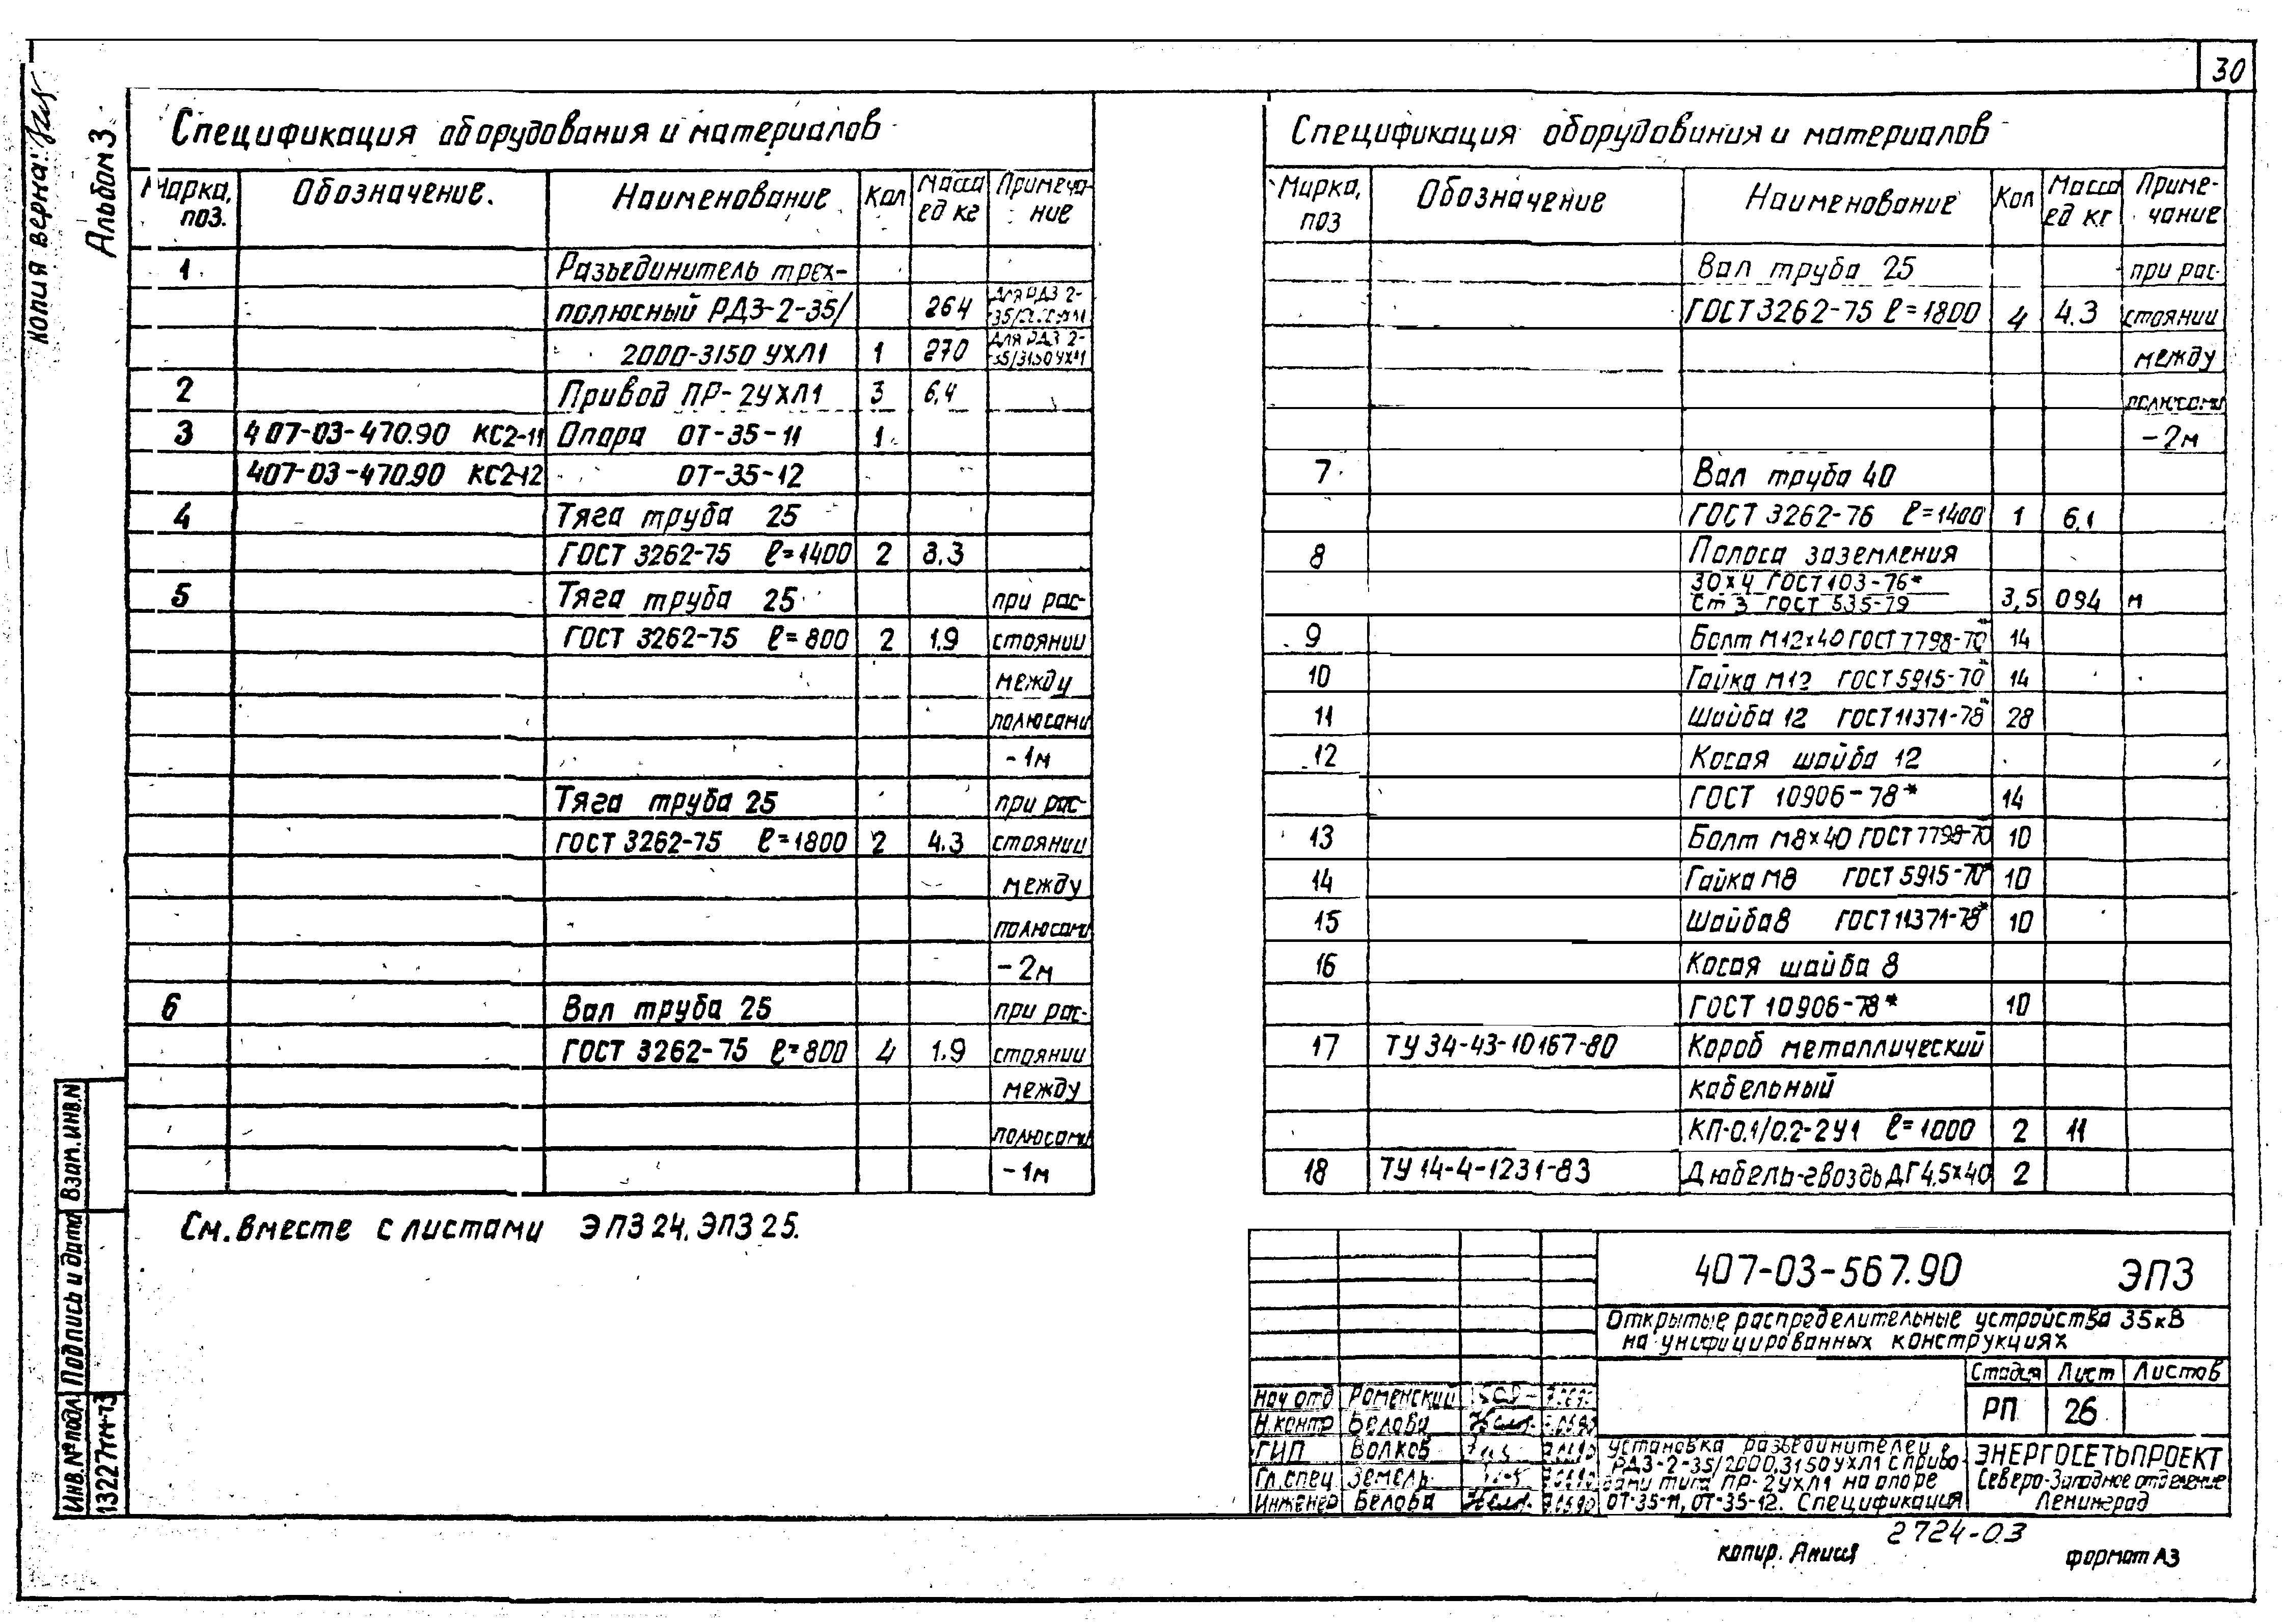 30
Копия верна:
Альбом 3
Спецификация оборудования и материалов
Марка, поз. Обозначение. Наименование Кол Масса ед кг Примечание
1 Разъединитель трех-
полюсный РДЗ-2-35/ 264 Для РДЗ 2-
2000-3150 УХЛ1 1 270 Для РДЗ 2-35/3150 УХЛ1
2 Привод ПР-2УХЛ1 3 6,4
3 407-03-470.90 КС2-11 Опора ОТ-35-11 1
407-03-470.90 КС2-12 ОТ-35-12
4 Тяга труба 25
ГОСТ 3262-75 ℓ=1400 2 3.3
5 Тяга труба 25 при рас-
ГОСТ 3262-75 ℓ=800 2 1.9 стоянии
между
полюсами
-1м
Тяга труба 25 при рас-
ГОСТ 3262-75 ℓ=1800 2 4.3 стоянии
между
полюсами
-2м
6 Вал труба 25 при рас-
ГОСТ 3262-75 ℓ=800 4 1.9 стоянии
между
полюсами
-1м
См. вместе с листами ЭП3 24, ЭП3 25.
Спецификация оборудования и материалов
Марка, поз Обозначение Наименование Кол Масса ед кг Примечание
Вал труба 25 при рас-
ГОСТ 3262-75 ℓ=1800 4 4.3 стоянии
между
полюсами
-2м
7 Вал труба 40
ГОСТ 3262-76 ℓ=1400 1 6.1
8 Полоса заземления
30×4 ГОСТ 103-76*
Ст 3 ГОСТ 535-79 3,5 094 м
9 Болт М12×40 ГОСТ 7798-70* 14
10 Гайка М12 ГОСТ 5915-70* 14
11 Шайба 12 ГОСТ 11371-78* 28
12 Косая шайба 12
ГОСТ 10906-78* 14
13 Болт М8×40 ГОСТ 7798-70 10
14 Гайка М8 ГОСТ 5915-70* 10
15 Шайба 8 ГОСТ 11371-78* 10
16 Косая шайба 8
ГОСТ 10906-78* 10
17 ТУ 34-43-10167-80 Короб металлический
кабельный
КП-0.1/0.2-2У1 ℓ=1000 2 11
18 ТУ 14-4-1231-83 Дюбель-гвоздь ДГ 4,5×40 2
407-03-567.90 ЭП3
Открытые распределительные устройства 35 кВ
на унифицированных конструкциях
Стадия Лист Листов
РП 26
Нач отд Роменский
Н.контр Белова
ГИП Волков
Гл.спец Земель
Инженер Белова
Установка разъединителей
РДЗ-2-35/2000,3150 УХЛ1 с приво-
дами типа ПР-2УХЛ1 на опоре
ОТ-35-11, ОТ-35-12. Спецификация
ЭНЕРГОСЕТЬПРОЕКТ
Северо-Западное отделение
Ленинград
2724-03
копир. формат А3
Взам.инв.N
Подпись и дата
Инв.№ подл.
13227тм-т3